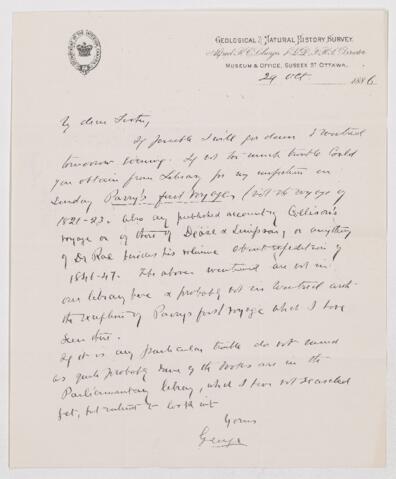 GEOLOGICAL & NATURAL HISTORY SURVEY.
Alfred R. C. Selwyn, L.L.D., F.R.S., Director
MUSEUM & OFFICE, SUSSEX ST. OTTAWA.
29 Oct 1886
My dear Father,
If possible I will go down to Montreal
tomorrow evening. If not too much trouble could
you obtain from Library for my inspection on
Sunday Parry's first voyage (not the voyage of
1821-23. also any published account of Collison's
voyage or of those of Dease & Simpson, or anything
of Dr Rae besides his volume about expedition of
1846-47. The above mentioned are not in
our library here & probably not in Montreal with
the exception of Parry's first voyage which I have
seen there.
If it is any particular trouble do not mind
as quite probably some of the books are in the
Parliamentary library, which I have not searched
yet, but intend to look into
Yours
George